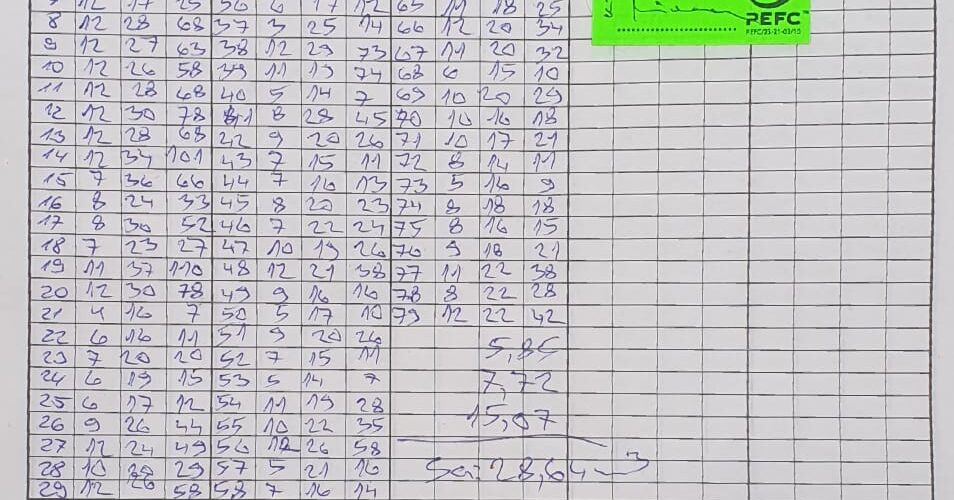 12 17 25 56 6 17 12 65 11 18 25
8 12 28 68 37 3 25 14 66 12 20 34
9 12 27 63 38 12 29 73 67 11 20 32
10 12 26 58 39 11 19 74 68 6 15 10
11 12 28 68 40 5 14 7 69 10 20 29
12 12 30 78 41 8 28 45 70 10 16 18
13 12 28 68 22 9 20 26 71 10 17 21
14 12 34 101 43 7 15 11 72 8 14 11
15 7 36 66 44 7 16 13 73 5 16 9
16 8 24 33 45 8 20 23 74 8 18 18
17 8 30 52 46 7 22 24 75 8 16 15
18 7 23 27 47 10 19 26 76 9 18 21
19 11 37 110 48 12 21 38 77 11 22 38
20 12 30 78 49 9 16 16 78 8 22 28
21 4 16 7 50 5 17 10 79 12 22 42
22 6 16 11 51 9 20 26
23 7 20 20 52 7 15 11 5,85
24 6 19 15 53 5 14 7 7,72
25 6 17 12 54 11 19 28 15,07
26 9 26 44 55 10 22 35
27 12 24 49 56 12 26 58
28 10 20 29 57 5 21 16 Sa: 28,64 m3
29 12 26 58 58 7 16 14
PEFC